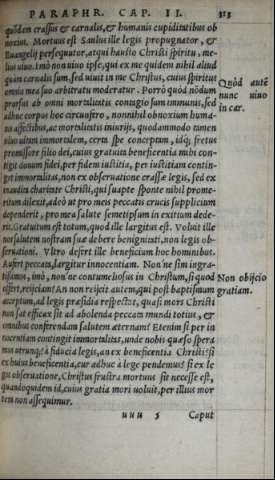 PARAPHR. CAP. II. 313
quódam crassus & carnalis, & humanis cupiditatibus ob
noxius. Mortuus est Saulus ille legis propugnator, &
Euangelij persequutor, atqui haustio Christi spiritu, me-
lius uiuo. Imò non uiuo ipse, qui ex me quidem nihil aliud
quàm carnalis sum, sed uiuit in me Christus, cuius spiritus
omnia mea suo arbitratu moderatur. Porrò quòd nódum
prorsus ab omni mortalitatis contagio sum immunis, sed
adhuc corpus hoc circumfero, nonnihil obnoxium huma-
nis affectibus, ac mortalitatis iniurijs, quodammodo tamen
uiuo uitam immortalem, certa spe conceptam, idq; fretus
promissore filio dei, cuius gratuita beneficentia mihi con-
tigit donum fidei, per fidem iustitia, per iustitiam contin-
git immortalitas, non ex obseruatione crassæ legis, sed ex
eximia charitate Christi, qui suapte sponte nihil prome-
ritum dilexit, adeò ut pro meis peccatis crucis supplicium
dependerit, pro mea salute semetipsum in exitium dede-
rit. Gratuitum est totum, quod ille largitus est. Voluit ille
nos salutem nostram suæ debere benignitati, non legis ob-
seruationi. Vltro defert ille beneficium hoc omnibus.
Aufert peccata, largitur innocentiam. Non'ne sim ingra-
tissimus, imò, non'ne contumeliosus in Christum, si quod
offert, reijciam? An non reijcit autem, qui post baptismum
acceptum, ad legis præsidia respectat, quasi mors Christi
non sat efficax sit ad abolenda peccata mundi totius, &
omnibus conferendam salutem æternam? Etenim si per in
nocentiam contingit immortalitas, unde nobis quæso spera
mus utrunq;? à fiducia legis, an ex beneficentia Christi? si
ex huius beneficentia, cur adhuc à lege pendemus? si ex le
gis obseruatione, Christus frustra mortuus sit necesse est,
quandoquidem id, cuius gratia mori uoluit, per illius mor
tem non assequimur.
uuu 5 Caput
Quòd autē
nunc uiuo
in car.
Non obijcio
gratiam.